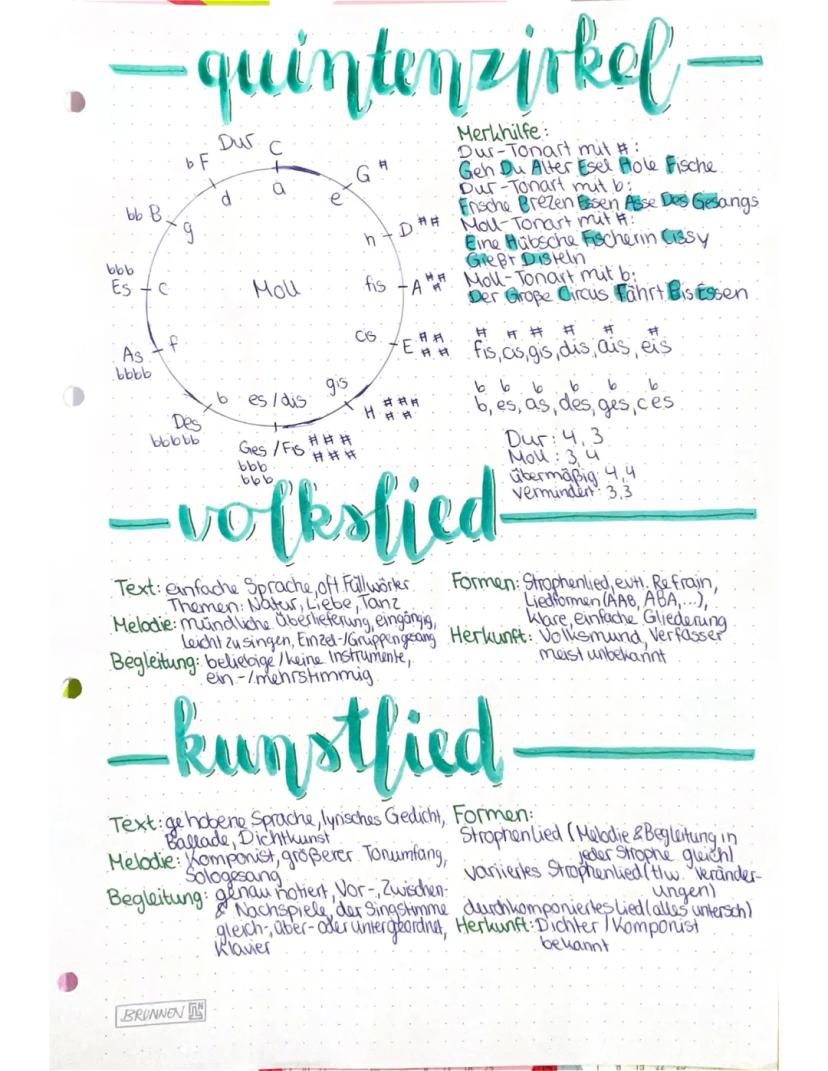 quintenzirkel
Dur
C
a
G #
e
D ##
h
A ###
fis
E ####
cis
H #####
gis
Ges / Fis ######
bbb
bbb
es / dis
Des
bbbbb
b
As
bbbb
f
bbb
Es
c
bb B
g
b F
d
Moll
Merkhilfe:
Dur-Tonart mit #:
Geh Du Alter Esel Hole Fische
Dur-Tonart mit b:
Frische Brezen Essen Asse Des Gesangs
Moll-Tonart mit #:
Eine Hübsche Fischerin Cissy
Gießt Disteln
Moll-Tonart mit b:
Der Große Circus Fährt Bis Essen
# # # # # #
fis, cis, gis, dis, ais, eis
b b b b b b
b, es, as, des, ges, ces
Dur: 4, 3
Moll: 3, 4
übermäßig: 4,4
vermindert: 3,3
volkslied
Text: einfache Sprache, oft Füllwörter
Themen: Natur, Liebe, Tanz
Melodie: mündliche Überlieferung, eingängig,
leicht zu singen, Einzel-/Gruppengesang
Begleitung: beliebige/keine Instrumente,
ein-/mehrstimmig
Formen: Strophenlied, evtl. Refrain,
Liedformen (AAB, ABA,...),
klare, einfache Gliederung
Herkunft: Volksmund, Verfasser
meist unbekannt
kunstlied
Text: gehobene Sprache, lyrisches Gedicht,
Ballade, Dichtkunst
Melodie: Komponist, größerer Tonumfang,
Sologesang
Begleitung: genau notiert, Vor-, Zwischen-
& Nachspiele, der Singstimme
gleich-, über- oder untergeordnet,
Klavier
Formen:
Strophenlied (Melodie & Begleitung in
jeder Strophe gleich)
variiertes Strophenlied (tlw. Veränder-
ungen)
durchkomponiertes Lied (alles untersch)
Herkunft: Dichter / Komponist
bekannt
BRUNNEN